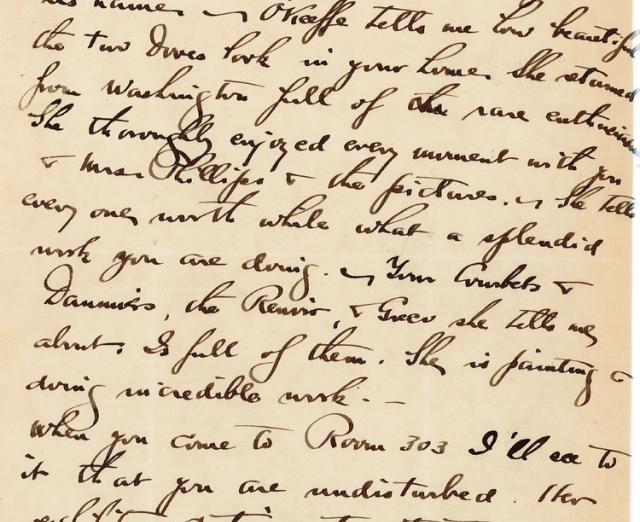 his name. — O'Keeffe tells me how beautiful
the two Doves look in your home. She returned
from Washington full of the rare enthusiasm
She thoroughly enjoyed every moment with you
& Mrs. Phillips & the pictures. — She tells
every one worth while what a splendid
work you are doing. — Your Courbets &
Daumiers, the Renoir, & Greco she tells me
about. Is full of them. She is painting &
doing incredible work. —
When you come to Room 303 I'll see to
it that you are undisturbed. Her